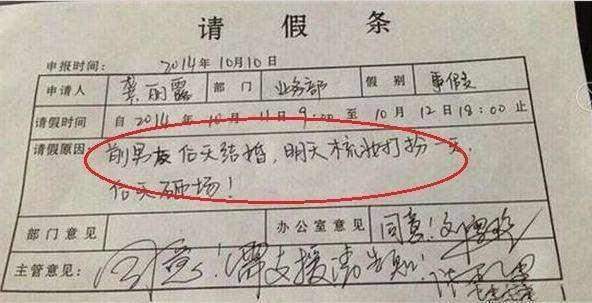 请假条
申报时间: 2014年10月10日
申请人 龚丽露 部门 业务部 假别 事假
请假时间 自2014年10月11日9:00至10月12日18:00止
请假原因 前男友后天结婚,明天梳妆打扮一天,
后天砸场!
部门意见 办公室意见 同意!
主管意见: 同意!需支援请告知!